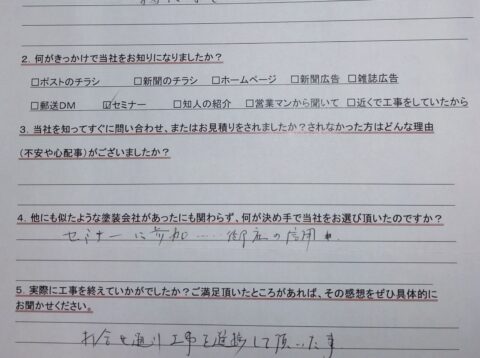 2. 何がきっかけで当社をお知りになりましたか?
□ポストのチラシ □新聞のチラシ □ホームページ □新聞広告 □雑誌広告
□郵送DM ☑セミナー □知人の紹介 □営業マンから聞いて □近くで工事をしていたから
3. 当社を知ってすぐに問い合わせ、またはお見積りをされましたか?されなかった方はどんな理由
(不安や心配事)がございましたか?
4. 他にも似たような塗装会社があったにも関わらず、何が決め手で当社をお選び頂いたのですか?
セミナーに参加……御社の信用
5. 実際に工事を終えていかがでしたか?ご満足頂いたところがあれば、その感想をぜひ具体的に
お聞かせください。
工事を進捗して頂いた事